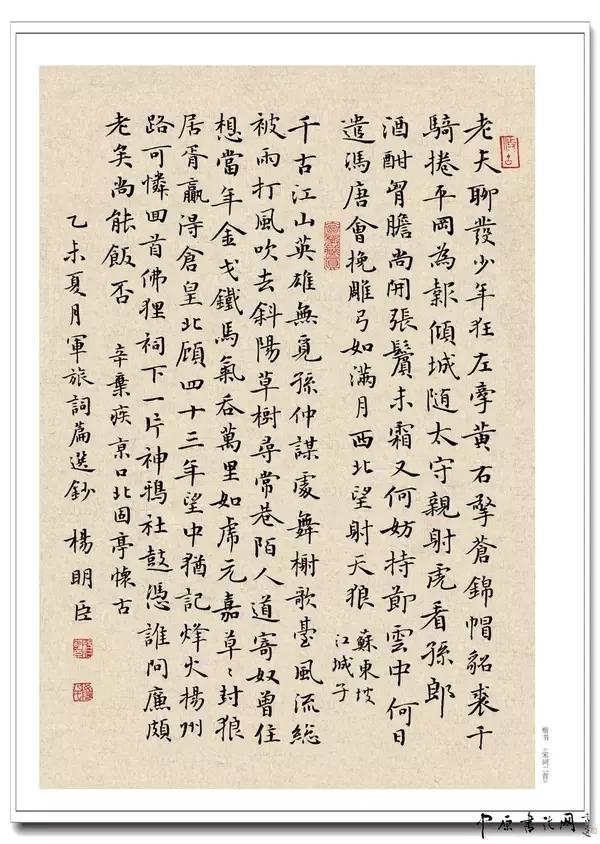 老夫聊發少年狂左牽黃右擎蒼錦帽貂裘千
騎捲平岡為報傾城隨太守親射虎看孫郎
酒酣胷膽尚開張鬢未霜又何妨持節雲中何日
遣馮唐會挽雕弓如滿月西北望射天狼
蘇東坡
江城子
千古江山英雄無覓孫仲謀處舞榭歌臺風流總
被雨打風吹去斜陽草樹尋常巷陌人道寄奴曾住
想當年金戈鐵馬氣吞萬里如虎元嘉草〻封狼
居胥贏得倉皇北顧四十三年望中猶記烽火揚州
路可憐回首佛狸祠下一片神鴉社鼓憑誰問廉頗
老矣尚能飯否 辛棄疾京口北固亭懷古
乙未夏月軍旅詞篇選鈔 楊明臣
楷书《宋词二首》
中原书法网